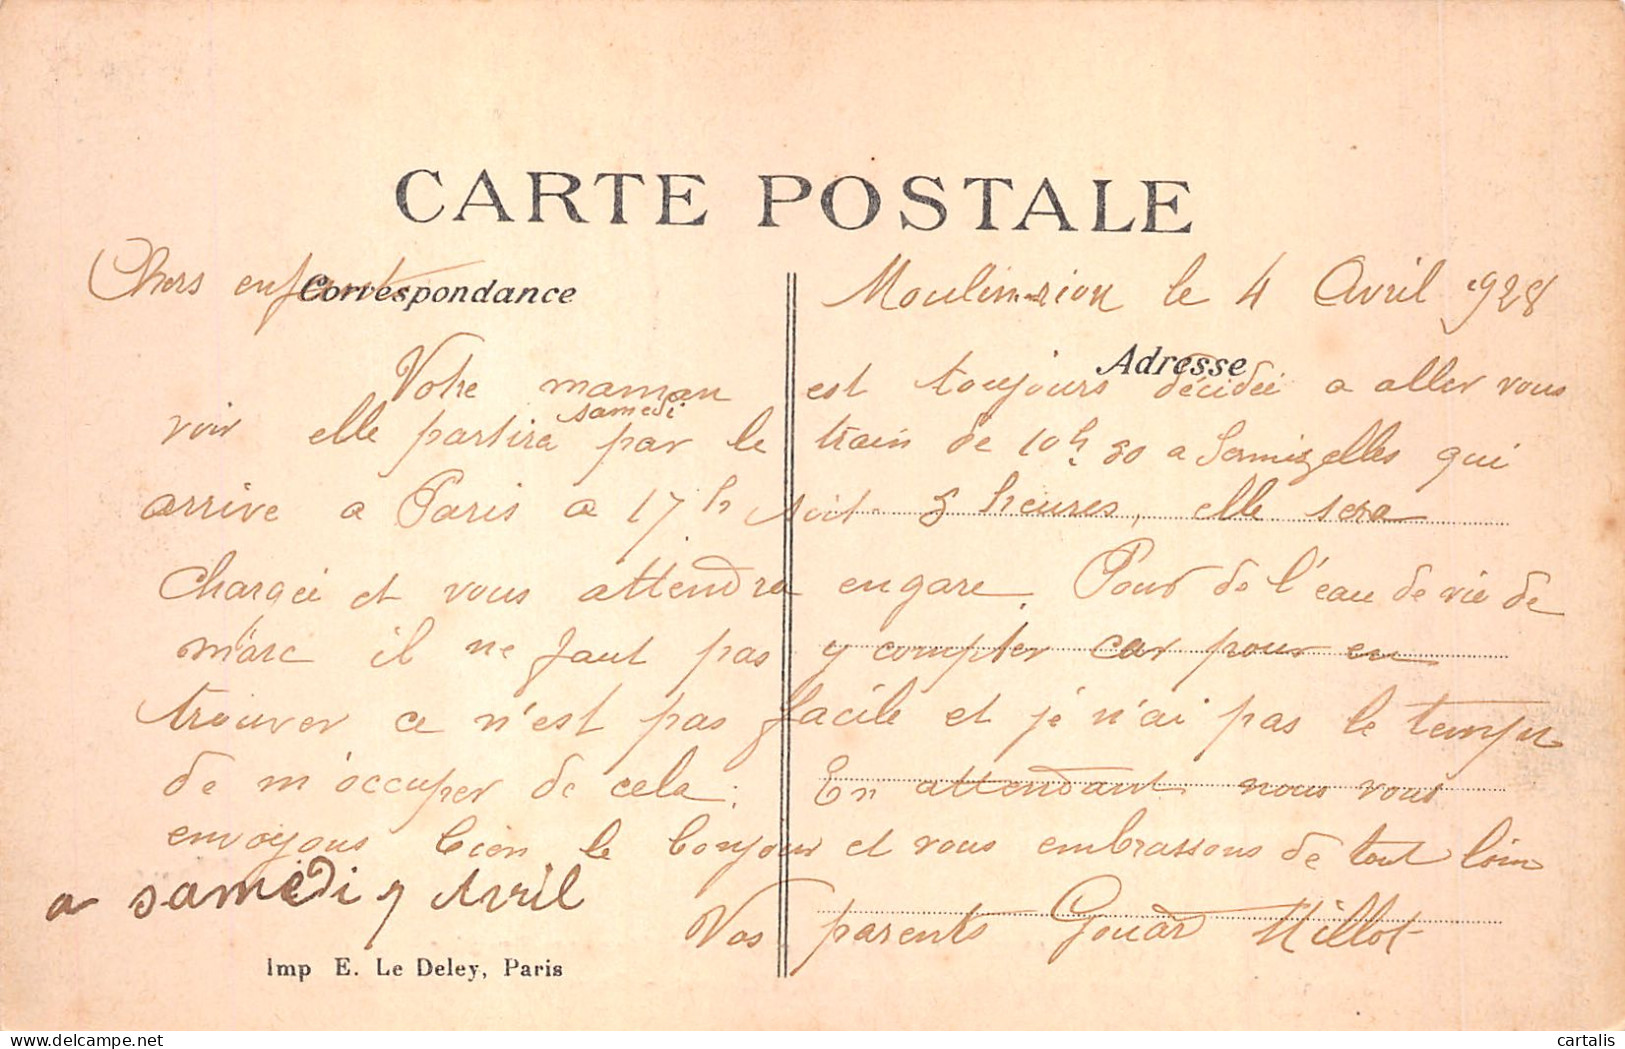 CARTE POSTALE
Chers enfants Moulin-rion le 4 Avril 1928
Correspondance
Adresse
Votre maman est toujours décidée a aller vous
samedi
voir elle partira par le train de 10h 30 a Sermizelles qui
arrive a Paris a 17h soit 5 heures, elle sera
chargée et vous attendra en gare. Pour de l'eau de vie de
marc il ne faut pas y compter car pour en
trouver ce n'est pas facile et je n'ai pas le temps
de m'occuper de cela. En attendant nous vous
envoyons bien le bonjour et vous embrassons de tout loin
a samedi 7 Avril
Vos parents Gouard Millot
Imp E. Le Deley, Paris
cartalis